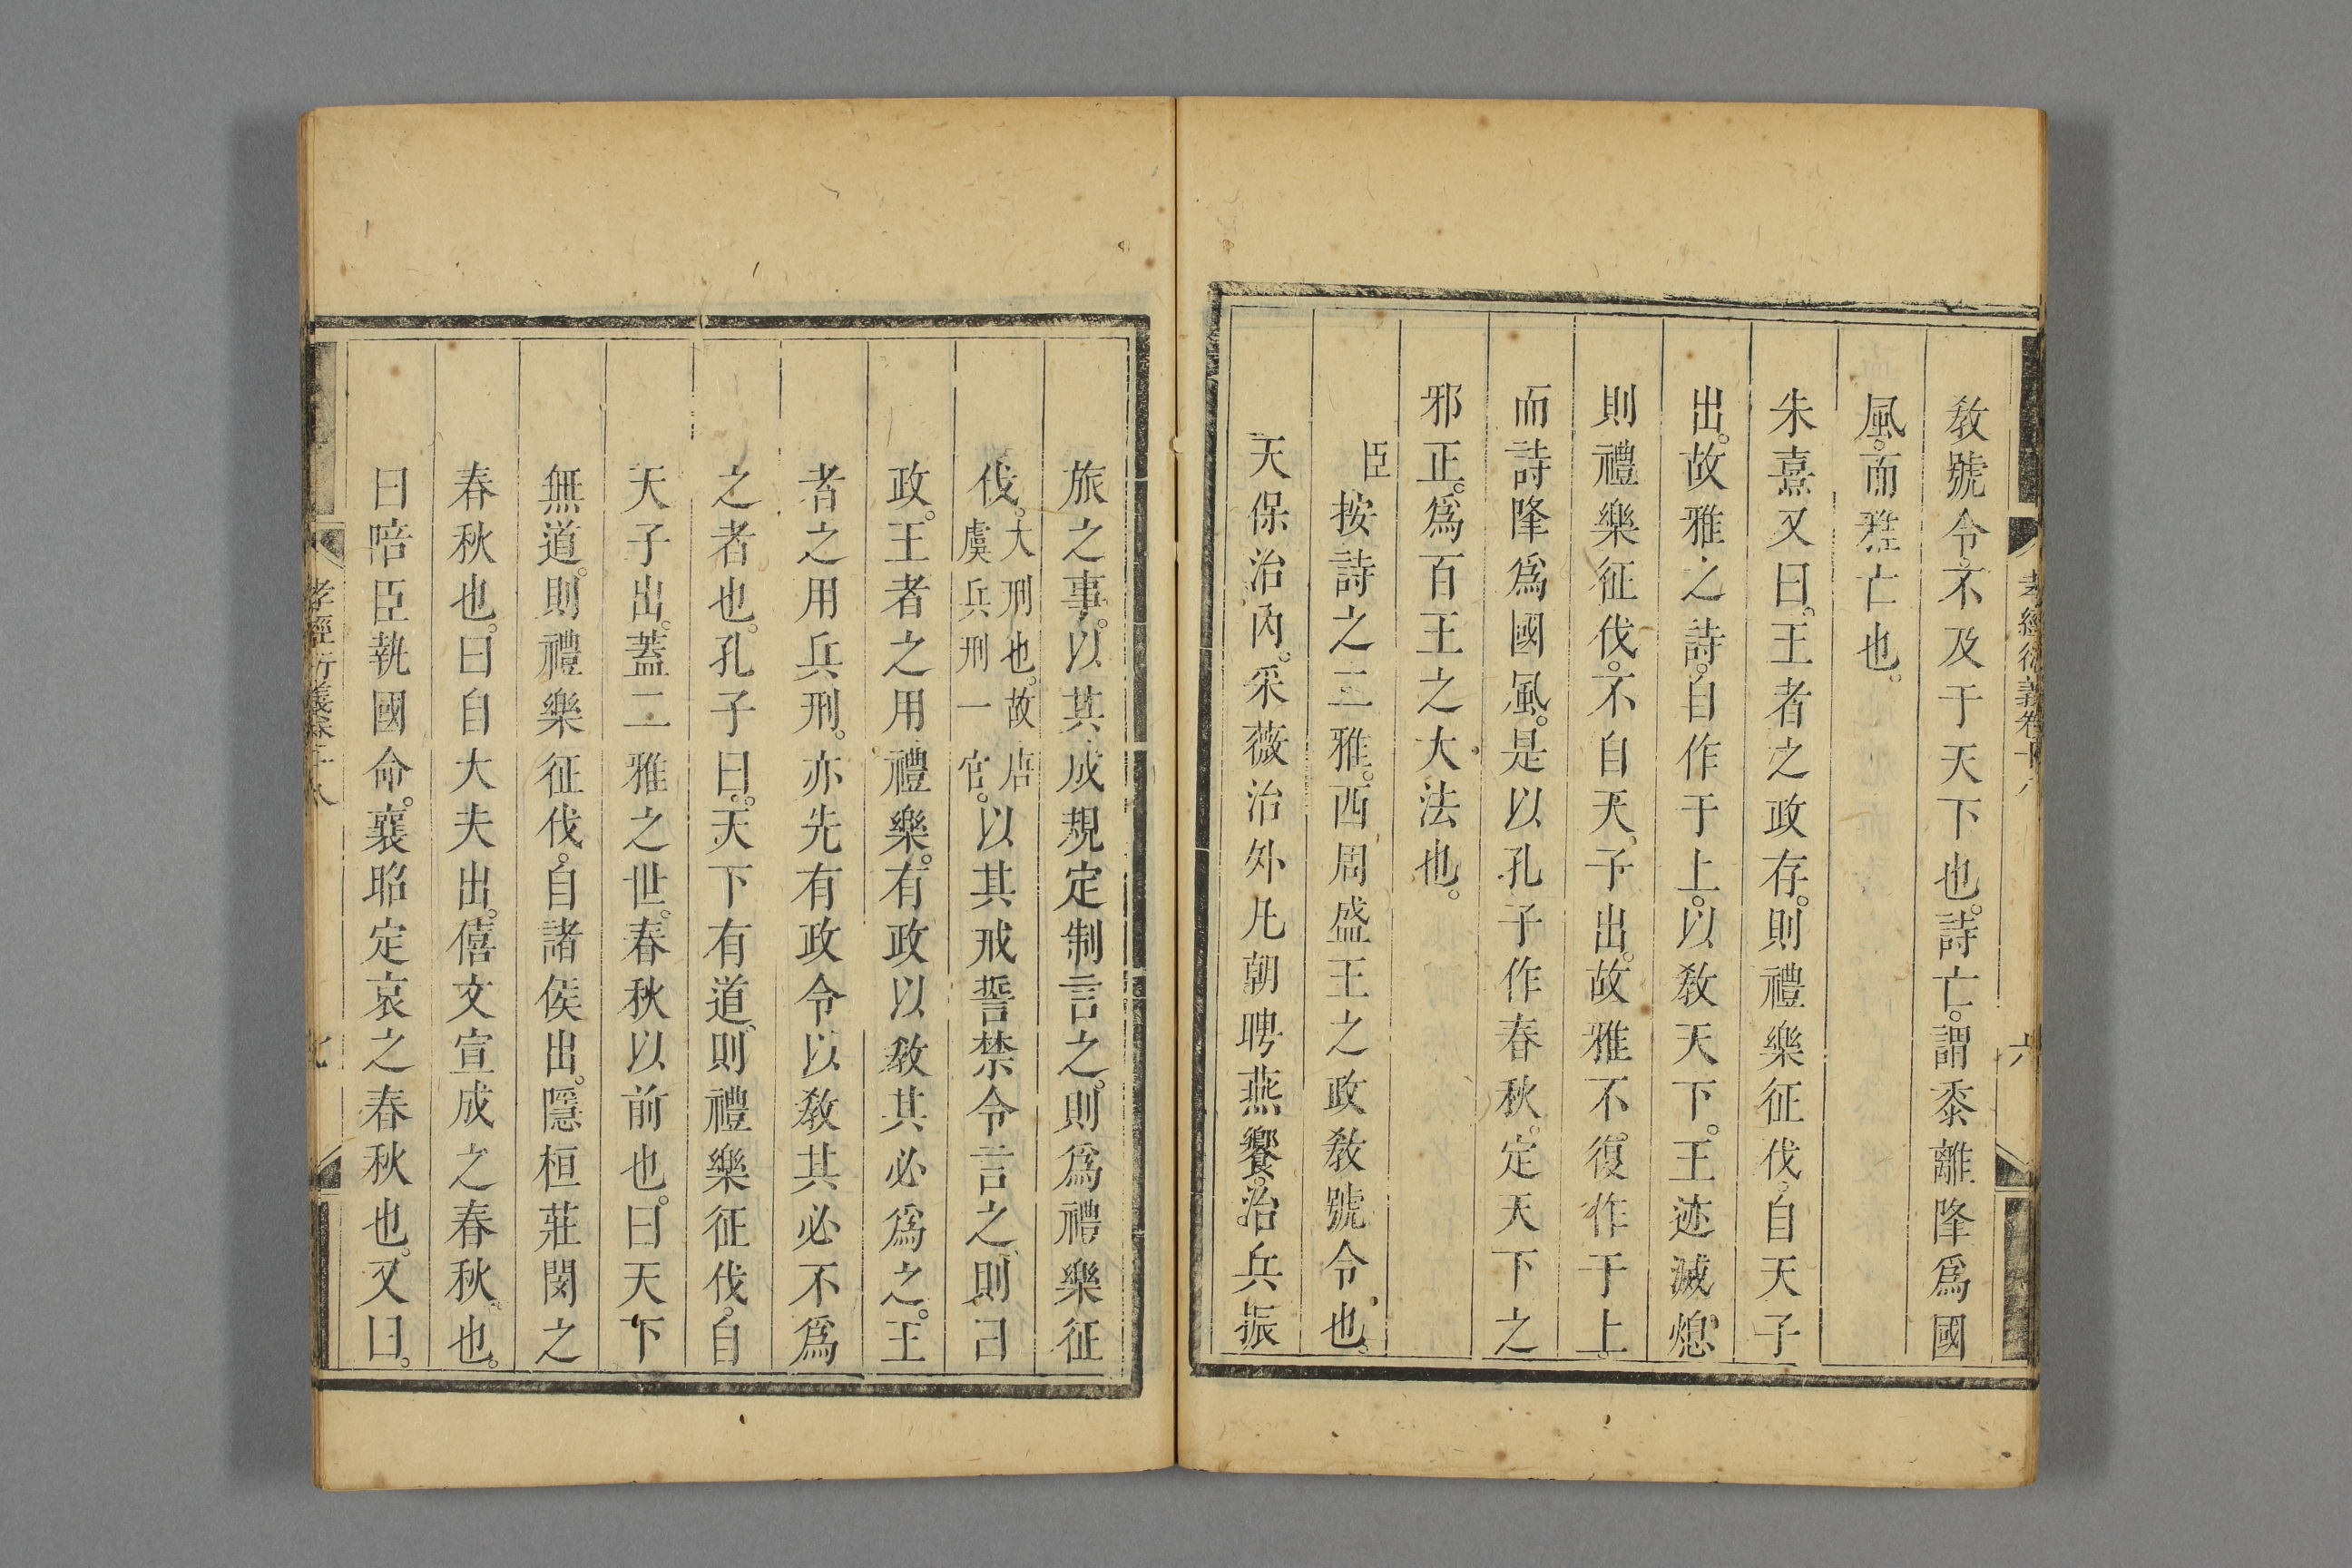 教號令。不及于天下也。詩亡。謂黍離降爲國
風。而雅亡也。
朱熹又曰。王者之政存。則禮樂征伐。自天子
出。故雅之詩。自作于上。以教天下。王迹滅熄。
則禮樂征伐。不自天子出。故雅不復作于上。
而詩降爲國風。是以孔子作春秋。定天下之
邪正。爲百王之大法也。
臣按詩之二雅。西周盛王之政教號令也。
天保治內。采薇治外。凡朝聘燕饗。治兵振
旅之事。以其成規定制言之。則爲禮樂征
伐。大刑也。故唐虞兵刑一官。以其戒誓禁令言之。則曰
政。王者之用禮樂。有政以教其必爲之。王
者之用兵刑。亦先有政令以教其必不爲
之者也。孔子曰。天下有道。則禮樂征伐。自
天子出。蓋二雅之世。春秋以前也。曰天下
無道。則禮樂征伐。自諸侯出。隱桓莊閔之
春秋也。曰自大夫出。僖文宣成之春秋也。
曰陪臣執國命。襄昭定哀之春秋也。又曰。
孝經衍義卷十八
六
孝經衍義卷十八
七